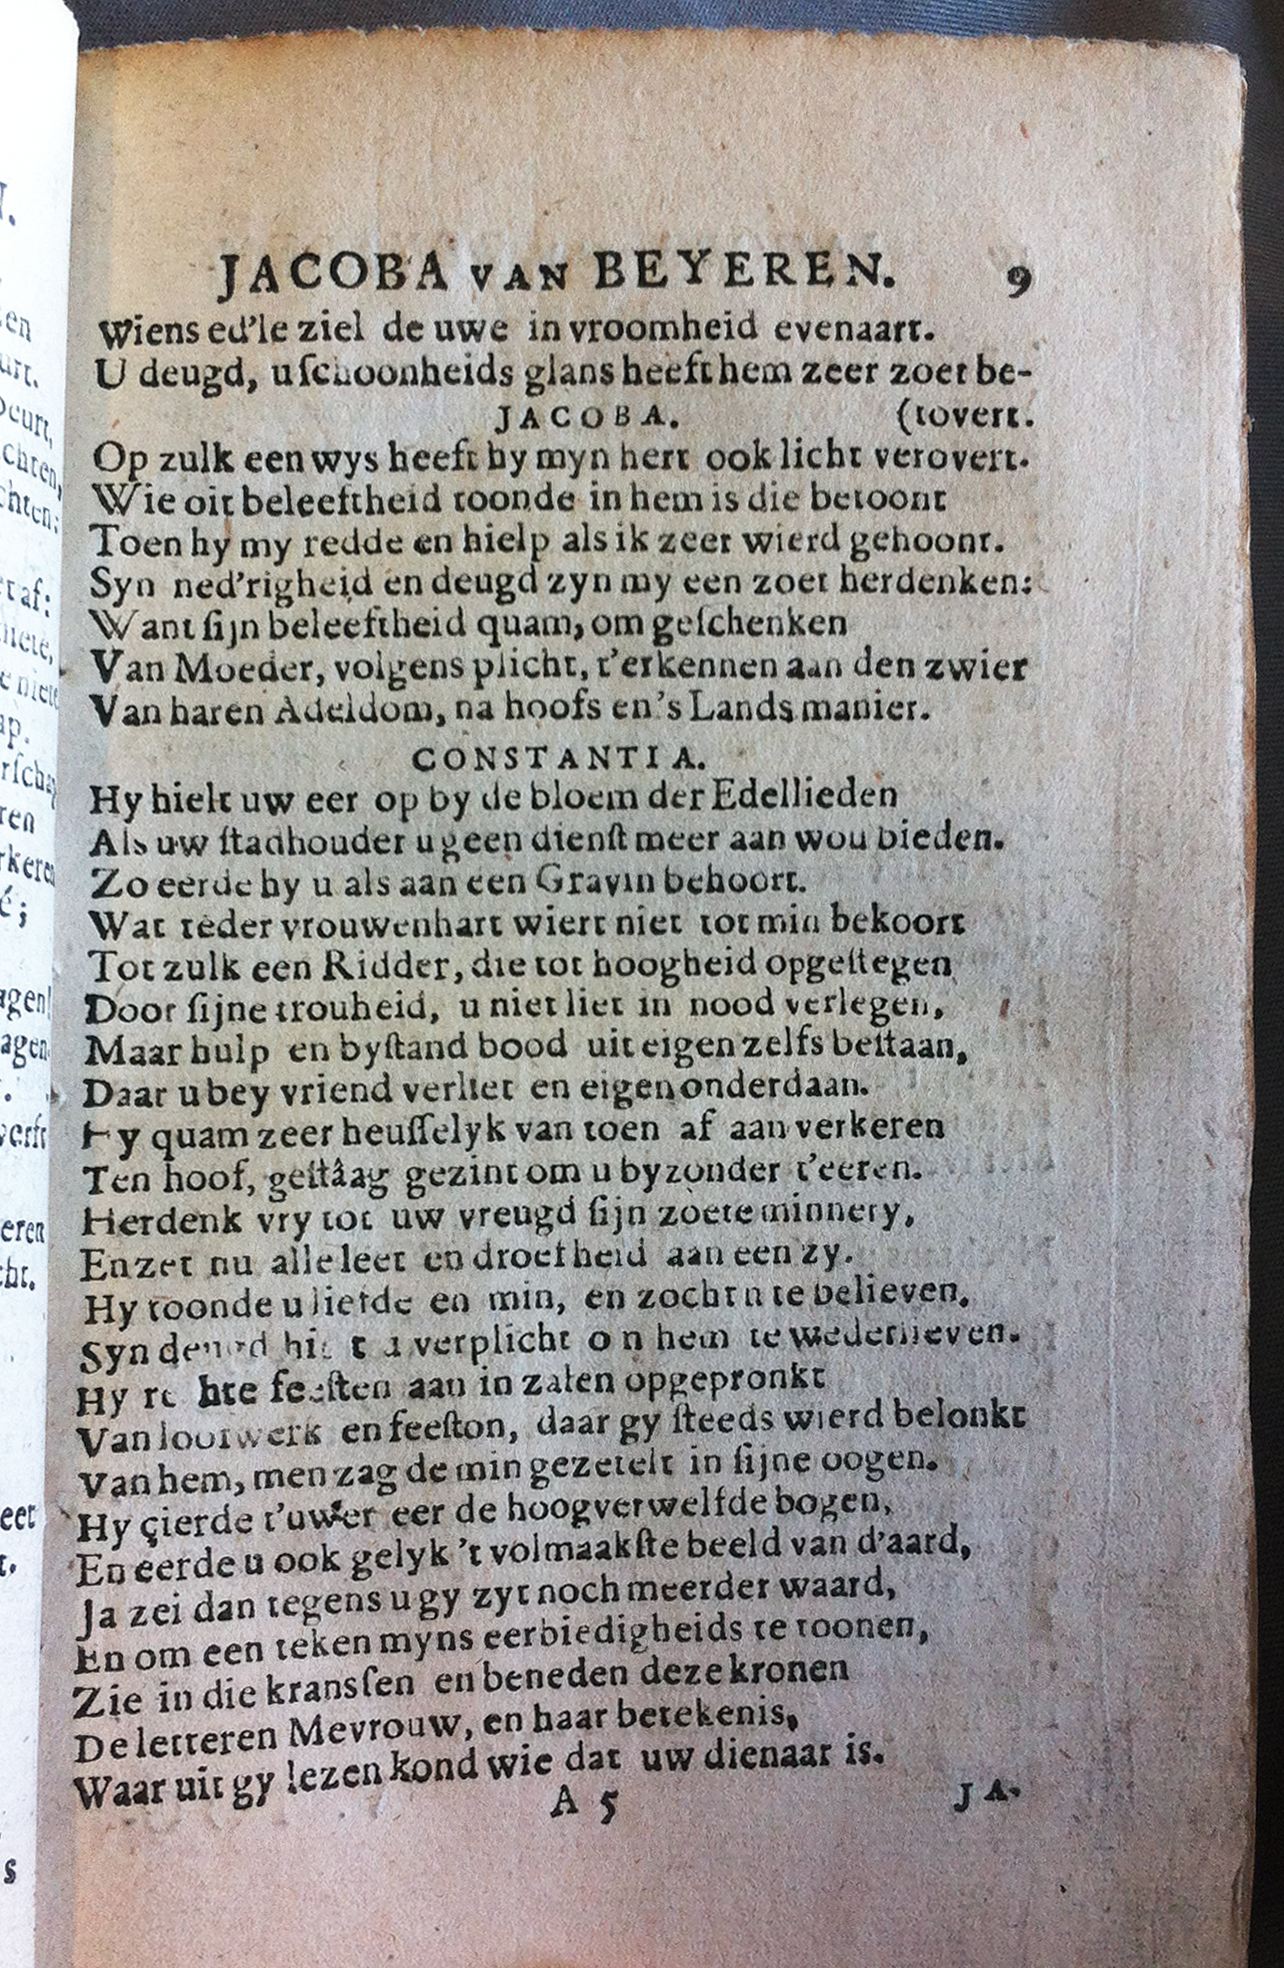 JACOBA VAN BEYEREN. 9
Wiens ed'le ziel de uwe in vroomheid evenaart.
U deugd, u ſchoonheids glans heeft hem zeer zoet be-
JACOBA. (tovert.
Op zulk een wys heeft hy myn hert ook licht verovert.
Wie oit beleeftheid toonde in hem is die betoont
Toen hy my redde en hielp als ik zeer wierd gehoont.
Syn ned'righeid en deugd zyn my een zoet herdenken:
Want ſijn beleeftheid quam, om geſchenken
Van Moeder, volgens plicht, t'erkennen aan den zwier
Van haren Adeldom, na hoofs en 's Lands manier.
CONSTANTIA.
Hy hielt uw eer op by de bloem der Edellieden
Als uw ſtadhouder u geen dienſt meer aan wou bieden.
Zo eerde hy u als aan een Gravin behoort.
Wat teder vrouwenhart wiert niet tot min bekoort
Tot zulk een Ridder, die tot hoogheid opgeſtegen
Door ſijne trouheid, u niet liet in nood verlegen,
Maar hulp en byſtand bood uit eigen zelfs beſtaan,
Daar u bey vriend verliet en eigen onderdaan.
Hy quam zeer heuſſelyk van toen af aan verkeren
Ten hoof, geſtâag gezint om u byzonder t'eeren.
Herdenk vry tot uw vreugd ſijn zoete minnery,
En zet nu alle leet en droefheid aan een zy.
Hy toonde u liefde en min, en zocht u te believen.
Syn deugd hi t u verplicht o n hem te wederlieven.
Hy re hte feeſten aan in zalen opgepronkt
Van loofwerk en feeſton, daar gy ſteeds wierd belonkt
Van hem, men zag de min gezetelt in ſijne oogen.
Hy çierde t'uwer eer de hoogverwelfde bogen,
En eerde u ook gelyk 't volmaakſte beeld van d'aard,
Ja zei dan tegens u gy zyt noch meerder waard,
En om een teken myns eerbiedigheids te toonen,
Zie in die kransſen en beneden deze kronen
De letteren Mevrouw, en haar betekenis,
Waar uit gy lezen kond wie dat uw dienaar is.
A 5 JA-